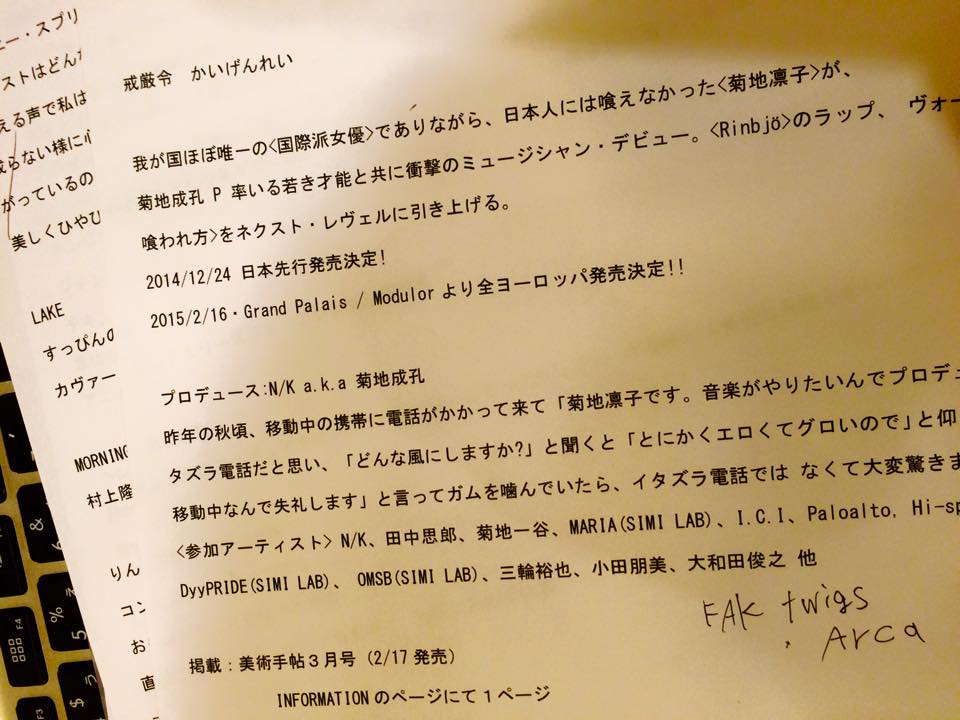 ニー・スプリ
ストはどんな
える声で私は
成らない様に
がっているの
美しくひやひ
LAKE
すっぴんの
カヴァー
MORNING
村上隆
りん
コン
お
直
戒厳令 かいげんれい
我が国ほぼ唯一の<国際派女優>でありながら、日本人には喰えなかった<菊地凛子>が、
菊地成孔 P 率いる若き才能と共に衝撃のミュージシャン・デビュー。<Rinbjö>のラップ、 ヴォー
喰われ方>をネクスト・レヴェルに引き上げる。
2014/12/24 日本先行発売決定!
2015/2/16・Grand Palais / Modulor より全ヨーロッパ発売決定!!
プロデュース:N/K a.k.a 菊地成孔
昨年の秋頃、移動中の携帯に電話がかかって来て「菊地凛子です。音楽がやりたいんでプロデュ
タズラ電話だと思い、「どんな風にしますか?」と聞くと「とにかくエロくてグロいので」と仰
移動中なんで失礼します」と言ってガムを噛んでいたら、イタズラ電話では なくて大変驚きま
<参加アーティスト> N/K、田中思郎、菊地一谷、MARIA(SIMI LAB)、I.C.I、Paloalto, Hi-sp
DyyPRIDE(SIMI LAB)、 OMSB(SIMI LAB)、三輪裕也、小田朋美、大和田俊之 他
FAK twigs
・ Arca
掲載：美術手帖３月号（2/17 発売）
INFORMATION のページにて１ページ
F4
F3
&
6
%
5